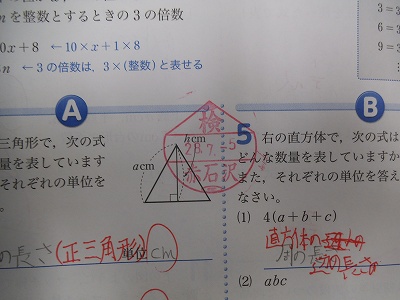 mを整数とするときの3の倍数
0x+8 ←10×x+1×8
n ←3の倍数は、3×(整数)と表せる
3=3
6=
9=3
A
B
三角形で，次の式
量を表しています
それぞれの単位を
。
検
28.7.-5
赤石沢
hcm
acm
5 右の直方体で，次の式は
どんな数量を表していますか
また，それぞれの単位を答え
なさい。
(1) 4(a+b+c)
直方体の
の長さ
の長さ(正三角形) 単位 cm
(2) abc